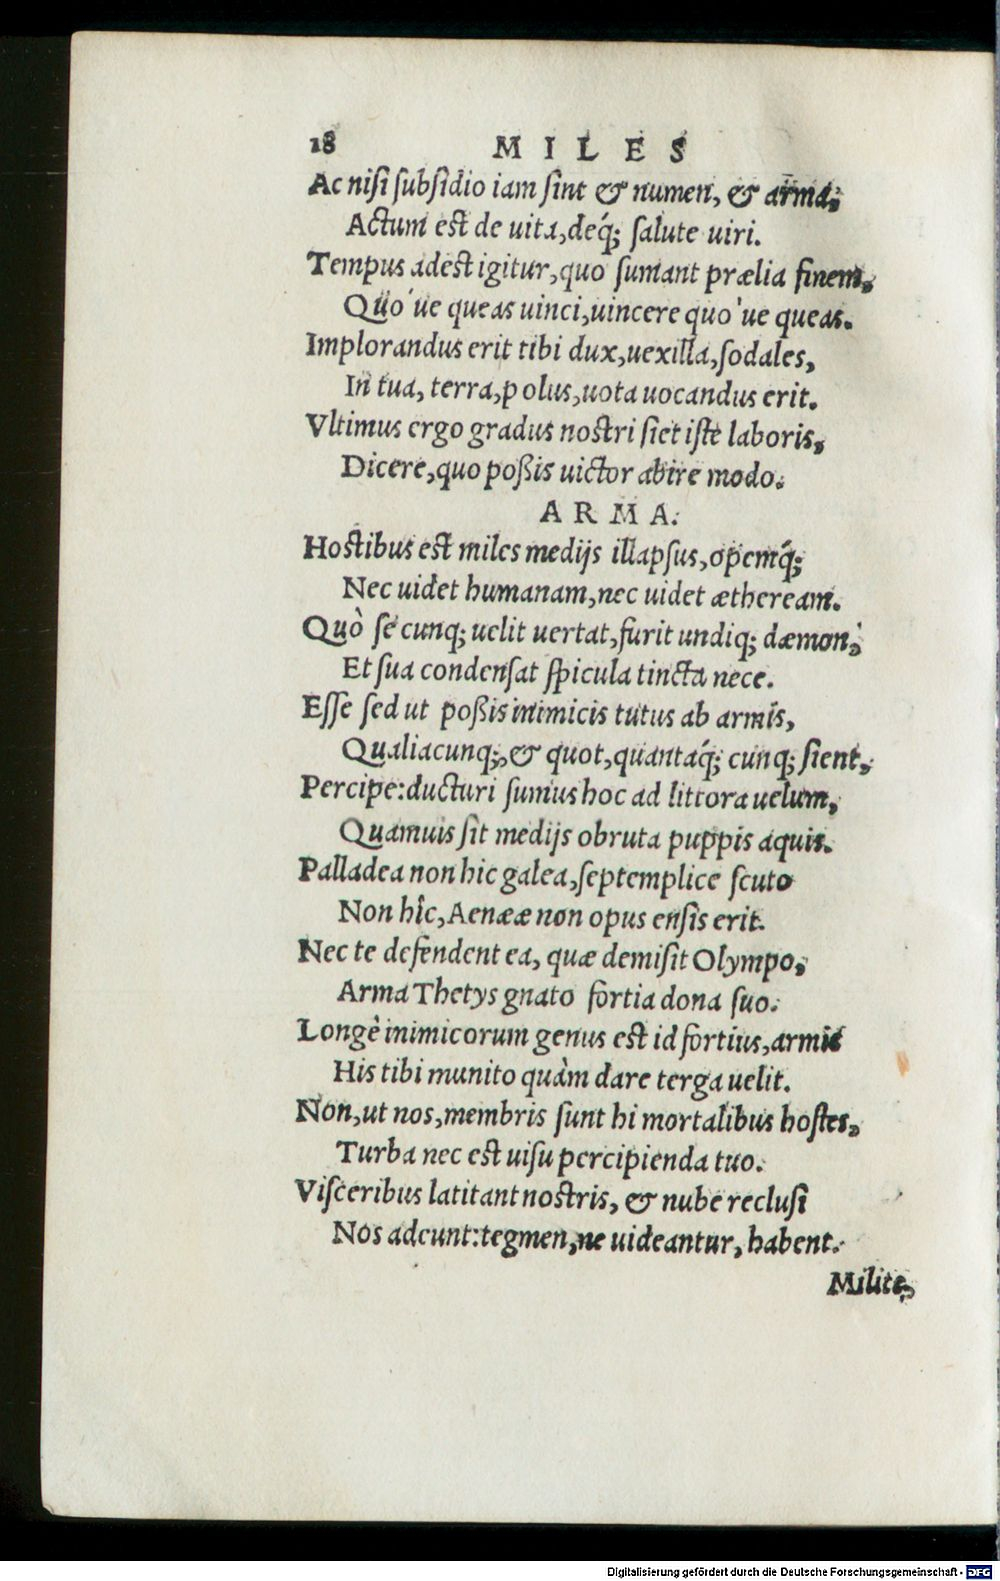 18 MILES
Ac nisi subsidio iam sint & numen, & arma,
Actum est de uita, deq́; salute uiri.
Tempus adest igitur, quo sumant prælia finem,
Quó ue queas uinci, uincere quo ùe queas.
Implorandus erit tibi dux, uexilla, sodales,
In tua, terra, polus, uota uocandus erit.
Vltimus ergo gradus nostri siet iste laboris,
Dicere, quo poßis uictor abire modo.
ARMA.
Hostibus est miles medijs illapsus, opemq́;
Nec uidet humanam, nec uidet ætheream.
Quò se cunq; uelit uertat, furit undiq; dæmon,
Et sua condensat spicula tincta nece.
Esse sed ut poßis inimicis tutus ab armis,
Qualiacunq;, & quot, quantaq́; cunq; sient,
Percipe: ducturi sumus hoc ad littora uelum,
Quamuis sit medijs obruta puppis aquis.
Palladea non hic galea, septemplice scuto
Non hîc, Aenææ non opus ensis erit.
Nec te defendent ea, quæ demisit Olympo,
Arma Thetys gnato fortia dona suo.
Longè inimicorum genus est id fortius, armis
His tibi munito quàm dare terga uelit.
Non, ut nos, membris sunt hi mortalibus hostes,
Turba nec est uisu percipienda tuo.
Visceribus latitant nostris, & nube reclusi
Nos adeunt: tegmen, ne uideantur, habent.
Milite,
Digitalisierung gefördert durch die Deutsche Forschungsgemeinschaft - DFG